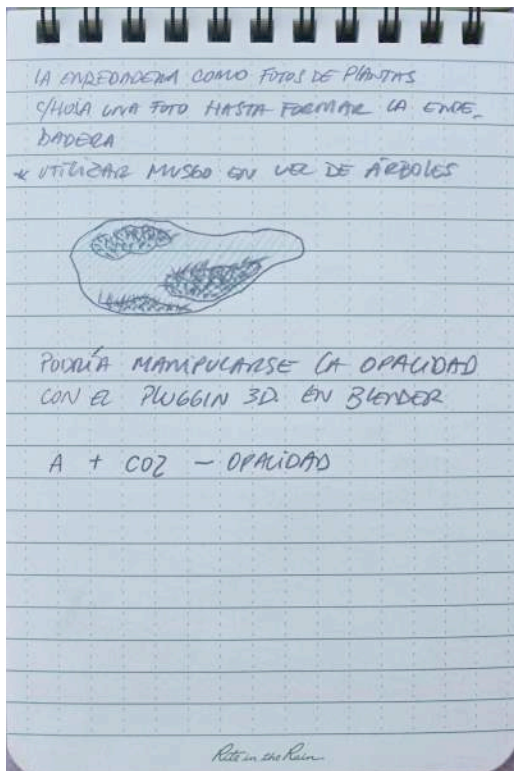 LA ENREDADERA COMO FOTOS DE PLANTAS
C/HOJA UNA FOTO HASTA FORMAR LA ENRE-
DADERA
* UTILIZAR MUSGO EN VEZ DE ÁRBOLES
PODRÍA MANIPULARSE LA OPACIDAD
CON EL PLUGGIN 3D. EN BLENDER
A + CO2 - OPACIDAD
Rite in the Rain